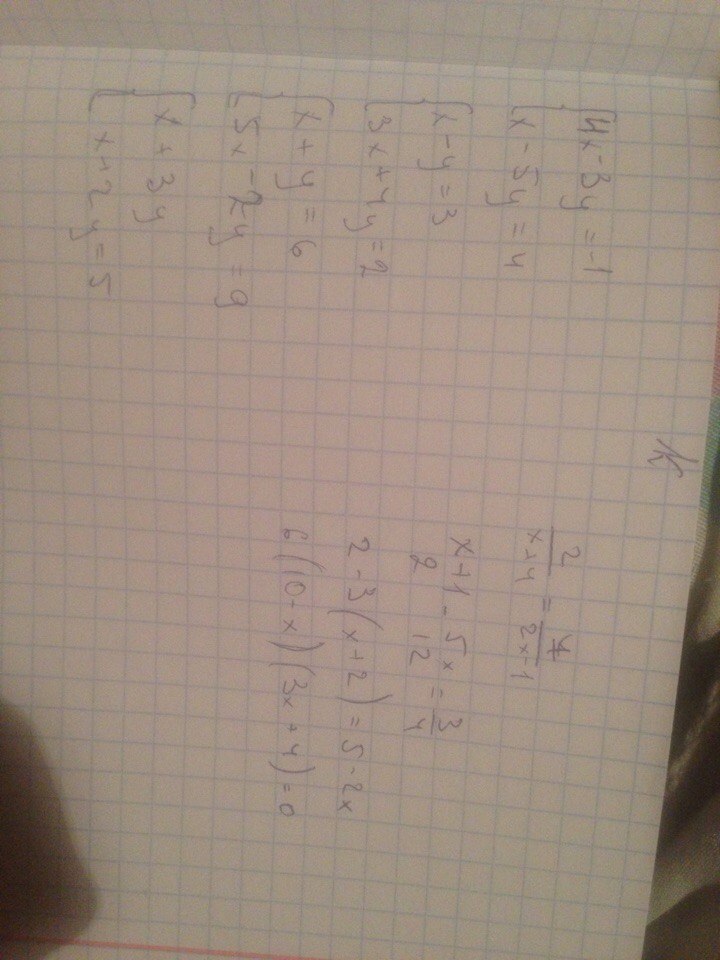 {4x-3y=-1
x-5y=4
{x-y=3
3x+4y=2
{x+y=6
5x-2y=9
{x+3y
x+2y=5
K
2/(x+4) = 4/(2x-1)
x+1/2 - 5x/12 = 3/4
2-3(x+2)=5-2x
6(10-x)(3x+4)=0